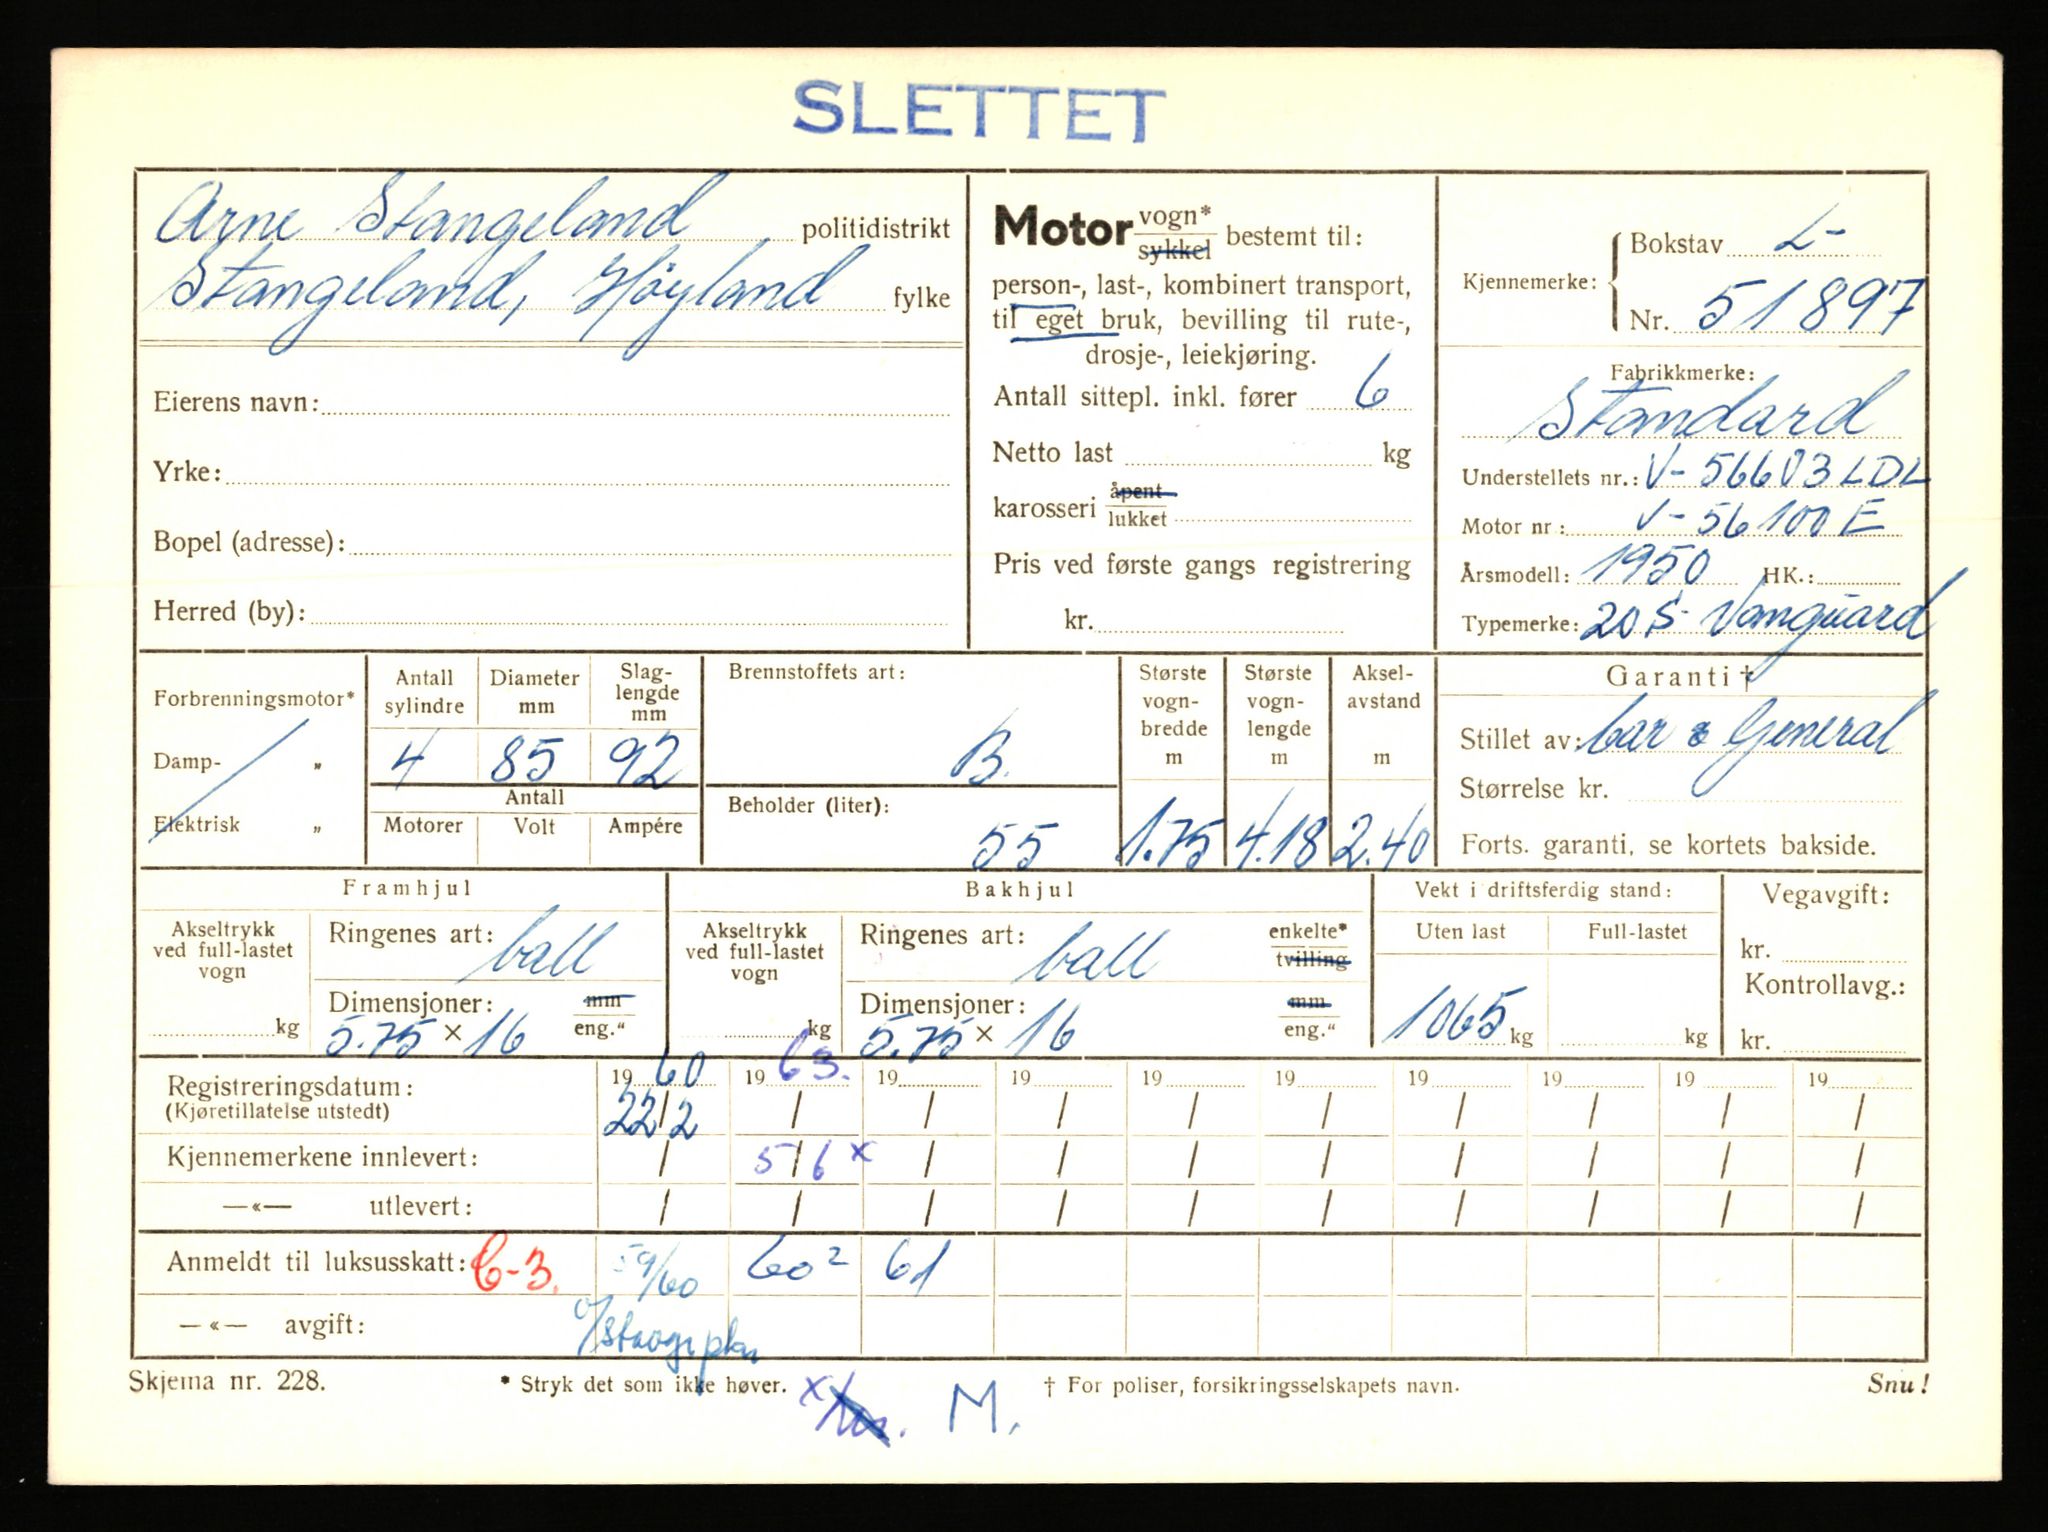 SLETTET
Arne Stangeland politidistrikt
Stangeland, Höyland fylke
Eierens navn:
Yrke:
Bopel (adresse):
Herred (by):
Motor vogn* sykkel bestemt til:
person-, last-, kombinert transport,
til eget bruk, bevilling til rute-,
drosje-, leiekjøring.
Antall sittepl. inkl. fører 6
Netto last kg
karosseri åpent lukket
Pris ved første gangs registrering
kr.
Kjennemerke: Bokstav L-
Nr. 51897
Fabrikkmerke:
Standard
Understellets nr.: V-56603 LDL
Motor nr: V-56100 E
Årsmodell: 1950 HK.:
Typemerke: 20 S- Vanguard
Forbrenningsmotor*
Damp- „
Elektrisk „
Antall sylindre
Diameter mm
Slag-
lengde
mm
4 85 92
Antall
Motorer Volt Ampére
Brennstoffets art:
B.
Beholder (liter):
55
Største
vogn-
bredde
m
1.75
Største
vogn-
lengde
m
4.18
Aksel-
avstand
m
2.40
Garanti †
Stillet av: Car & General
Størrelse kr.
Forts. garanti, se kortets bakside.
Framhjul
Akseltrykk
ved full-lastet
vogn
kg
Ringenes art: ball
Dimensjoner: mm
5.75 × 16 eng."
Bakhjul
Akseltrykk
ved full-lastet
vogn
kg
Ringenes art: ball enkelte* tvilling
Dimensjoner: mm
5.75 × 16 eng."
Vekt i driftsferdig stand:
Uten last Full-lastet
1065 kg kg
Vegavgift:
kr.
Kontrollavg.:
kr.
Registreringsdatum: 1960 1963. 19 19 19 19 19 19 19 19
(Kjøretillatelse utstedt) 22/2 / / / / / / / / /
Kjennemerkene innlevert: / 5/6 x / / / / / / / /
—«— utlevert: / / / / / / / / / /
Anmeldt til luksusskatt: C-3. 59/60 60² 61
—«— avgift:
Skjema nr. 228. * Stryk det som ikke høver. † For poliser, forsikringsselskapets navn. Snu!
x M.